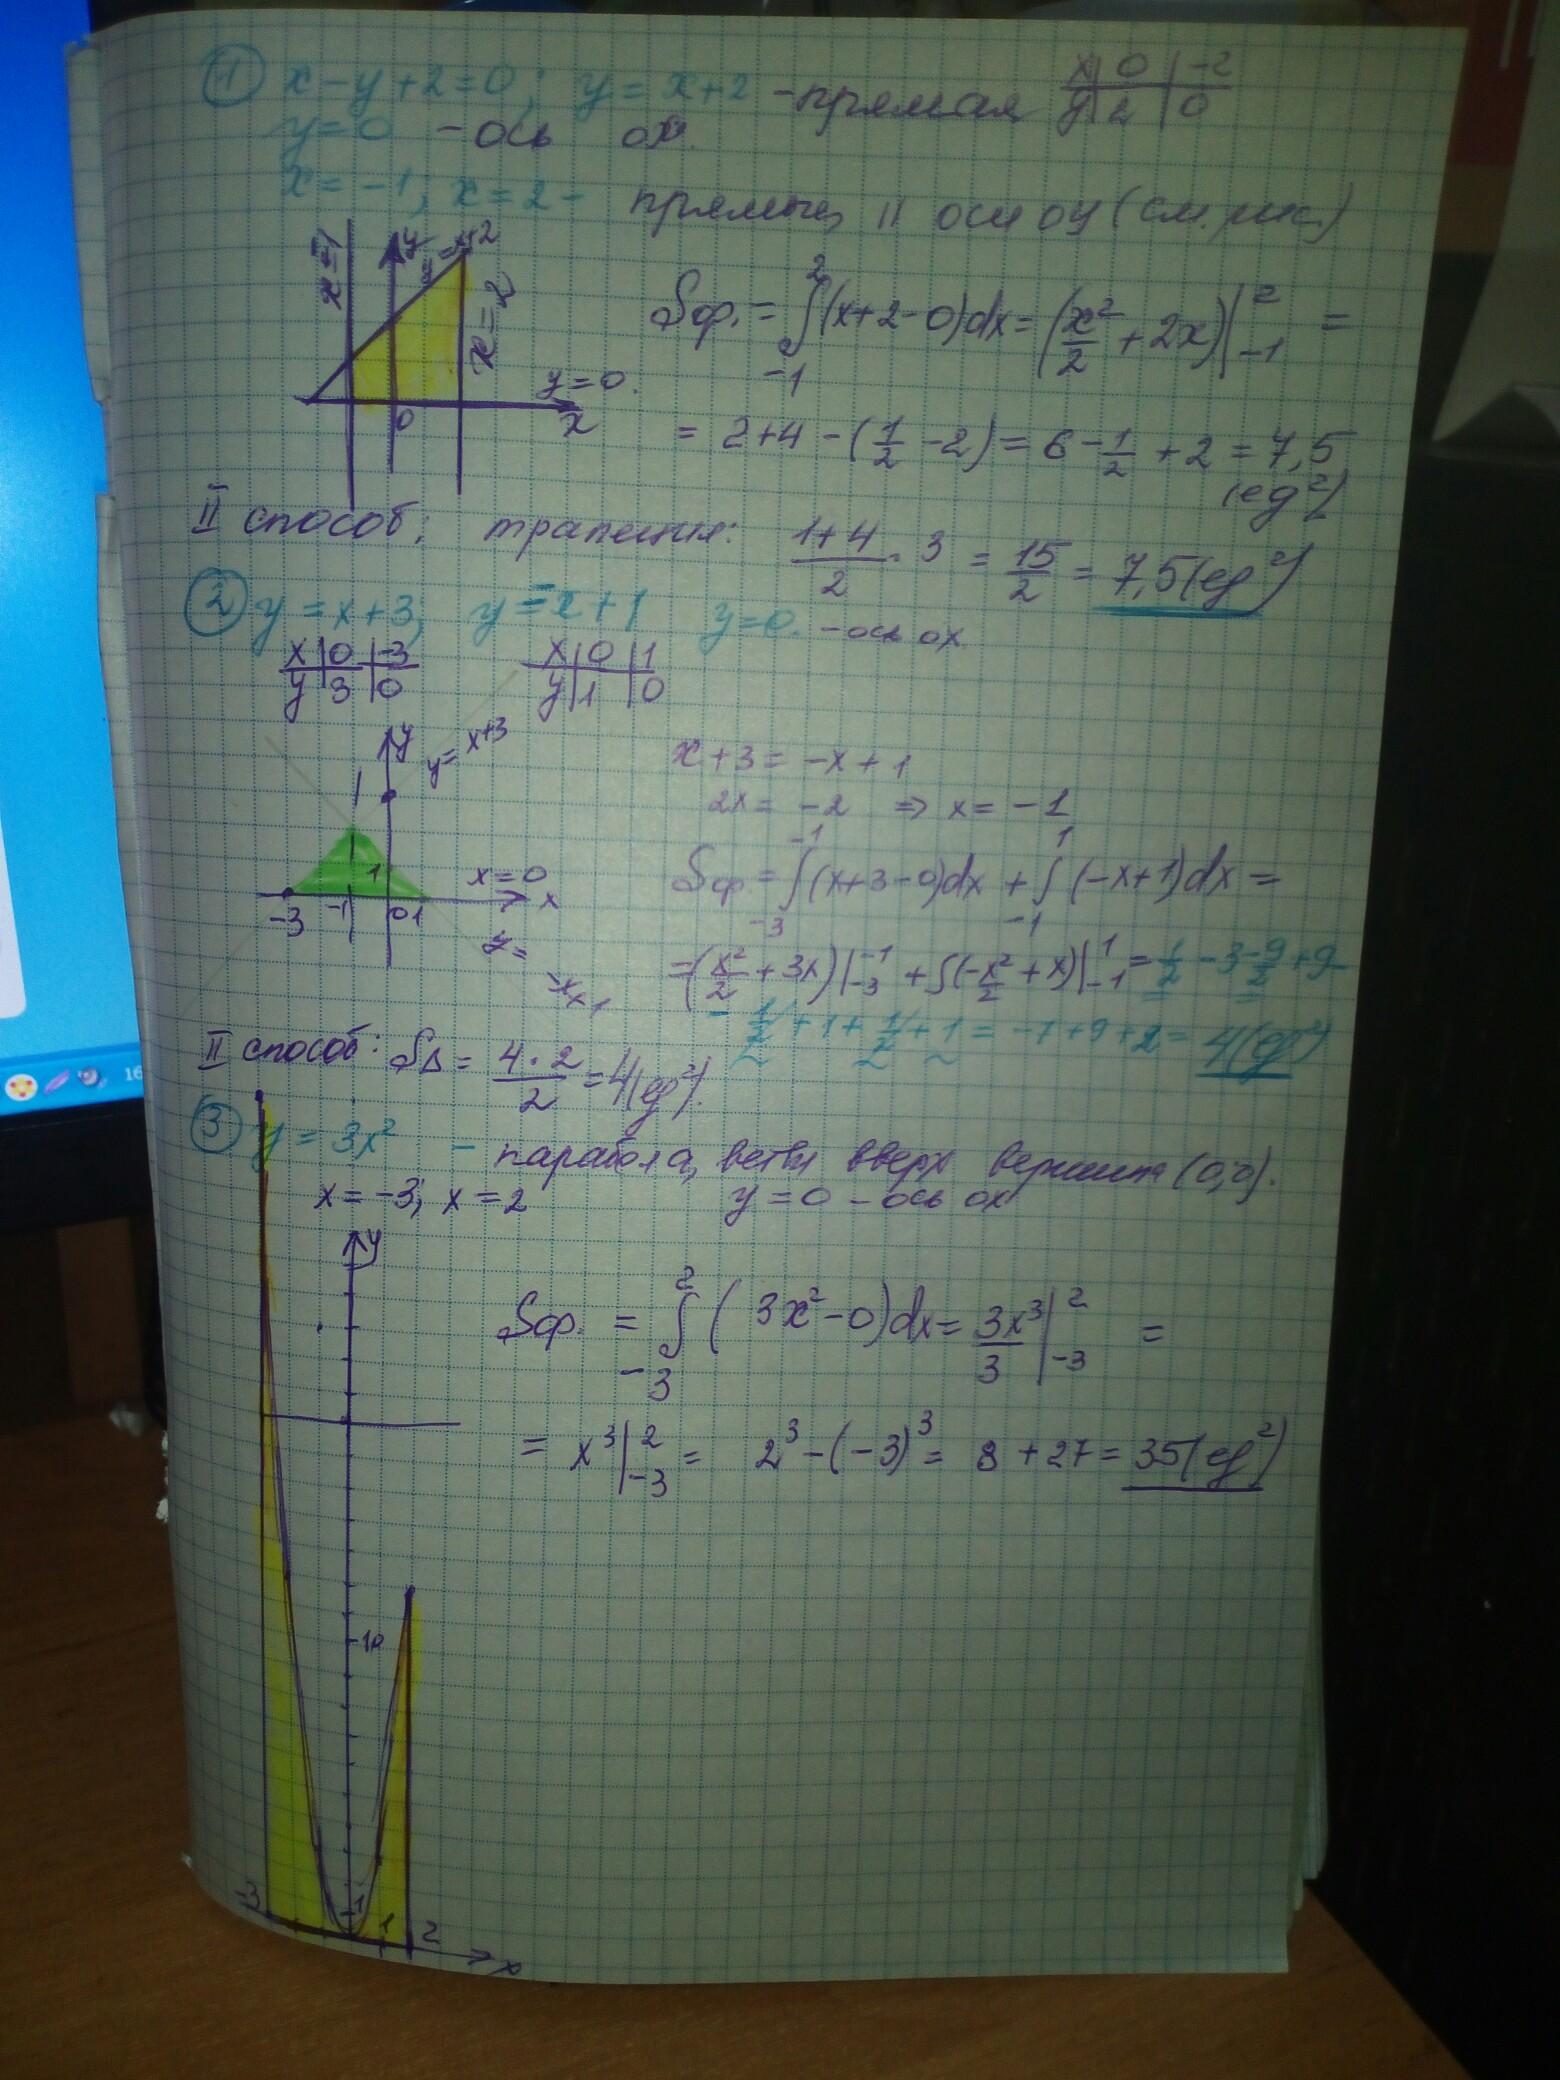 ① x-y+2=0; y=x+2 - прямая x | 0 | -2
y | 2 | 0
y=0 - ось ox.
x=-1; x=2 - прямые, II оси оу (см. рис)
x=-1 y y=x+2 x=2
Sф. = ∫₋₁² (x+2-0)dx = (x²/2 + 2x)|₋₁² =
y=0.
0 x
= 2+4 - (1/2 - 2) = 6 - 1/2 + 2 = 7,5
(ед²)
II способ: трапеция: (1+4)/2 · 3 = 15/2 = 7,5 (ед²)
② y = x+3; y = -x+1 y=0. - ось ox
x | 0 | -3 x | 0 | 1
y | 3 | 0 y | 1 | 0
y y=x+3
x+3 = -x+1
2x = -2 ⇒ x = -1
1 x=0
-3 -1 0 1 x
Sф = ∫₋₃⁻¹ (x+3-0)dx + ∫₋₁¹ (-x+1)dx =
y=
-x+1
=(x²/2 + 3x)|₋₃⁻¹ + ∫(-x²/2 + x)|₋₁¹ = 1/2 - 3 - 9/2 + 9 -
- 1/2 + 1 + 1/2 + 1 = -7+9+2 = 4(ед²)
II способ: SΔ = (4·2)/2 = 4(ед²).
③ y = 3x² - парабола, ветви вверх вершина (0;0).
x = -3; x = 2 y = 0 - ось ox
y
Sф. = ∫₋₃² (3x²-0)dx = 3x³/3 |₋₃² =
= x³|₋₃² = 2³-(-3)³ = 8 + 27 = 35(ед²)
10
-3 1 1 2
x
16